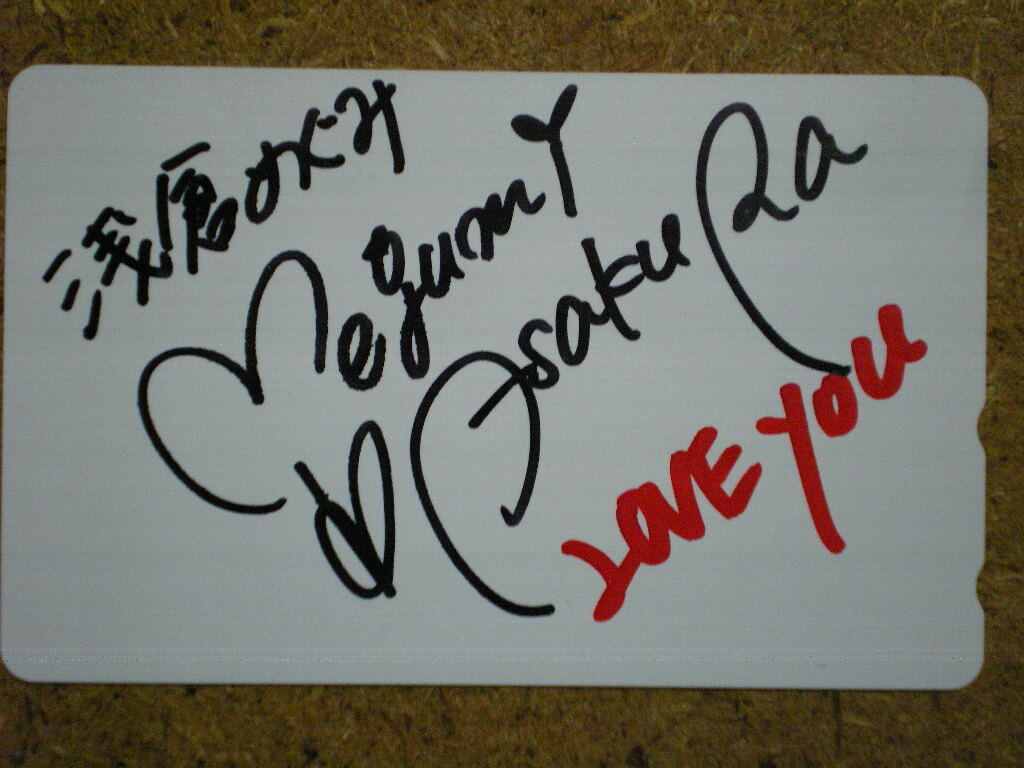 浅倉めぐみ
Megumi
AsakuRa
LOVE YOU